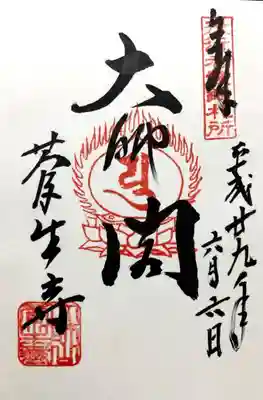 奉拝
平成廿九年
六月六日
大師閣
菅生寺